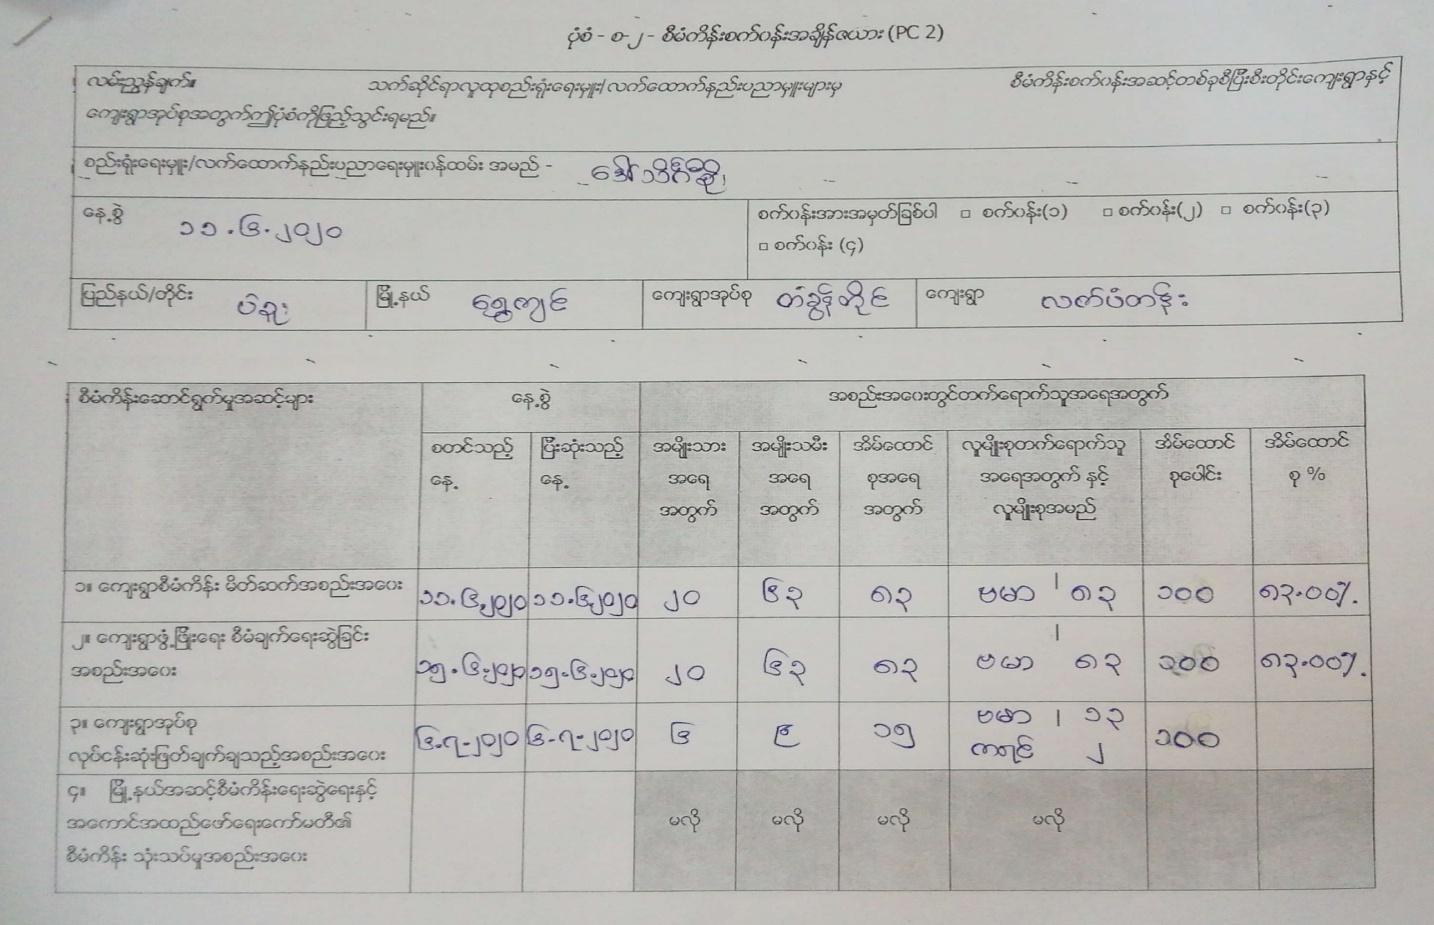 ပုံစံ - စ-၂ - စီမံကိန်းစက်ဝန်းအချိန်ဇယား (PC 2)
လမ်းညွှန်ချက်။ သက်ဆိုင်ရာလူထုစည်းရုံးရေးမှူး/လက်ထောက်နည်းပညာမှူးများမှ စီမံကိန်းစက်ဝန်းအဆင့်တစ်ခုစီပြီးစီးတိုင်းကျေးရွာနှင့်
ကျေးရွာအုပ်စုအတွက်ဤပုံစံကိုဖြည့်သွင်းရမည်။
စည်းရုံးရေးမှူး/လက်ထောက်နည်းပညာရေးမှူးဝန်ထမ်း အမည် -
နေ့စွဲ ၁၁.၆.၂၀၂၀ စက်ဝန်းအားအမှတ်ခြစ်ပါ □ စက်ဝန်း(၁) □ စက်ဝန်း(၂) □ စက်ဝန်း(၃)
□ စက်ဝန်း (၄)
ပြည်နယ်/တိုင်း ပဲခူး မြို့နယ် ရွှေကျင် ကျေးရွာအုပ်စု တံခွန်တိုင် ကျေးရွာ လက်ပံတန်း
စီမံကိန်းဆောင်ရွက်မှုအဆင့်များ နေ့စွဲ အစည်းအဝေးတွင်တက်ရောက်သူအရေအတွက်
စတင်သည့် ပြီးဆုံးသည့် အမျိုးသား အမျိုးသမီး အိမ်ထောင် လူမျိုးစုတက်ရောက်သူ အိမ်ထောင် အိမ်ထောင်
နေ့ နေ့ အရေ အရေ စုအရေ အရေအတွက် နှင့် စုပေါင်း စု %
အတွက် အတွက် အတွက် လူမျိုးစုအမည်
၁။ ကျေးရွာစီမံကိန်း မိတ်ဆက်အစည်းအဝေး ၁၁.၆.၂၀၂၀ ၁၁.၆.၂၀၂၀ ၂၀ ၆၃ ၈၃ ဗမာ | ၈၃ ၁၀၀ ၈၃.၀၀%
၂။ ကျေးရွာဖွံ့ဖြိုးရေး စီမံချက်ရေးဆွဲခြင်း
အစည်းအဝေး ၁၅.၆.၂၀၂၀ ၁၅.၆.၂၀၂၀ ၂၀ ၆၃ ၈၃ ဗမာ | ၈၃ ၁၀၀ ၈၃.၀၀%
၃။ ကျေးရွာအုပ်စု ဗမာ | ၁၃
လုပ်ငန်းဆုံးဖြတ်ချက်ချသည့်အစည်းအဝေး ၆-၇-၂၀၂၀ ၆-၇-၂၀၂၀ ၆ ၉ ၁၅ ကရင် ၂ ၁၀၀
၄။ မြို့နယ်အဆင့်စီမံကိန်းရေးဆွဲရေးနှင့်
အကောင်အထည်ဖော်ရေးကော်မတီ၏ မလို မလို မလို မလို
စီမံကိန်း သုံးသပ်မှုအစည်းအဝေး